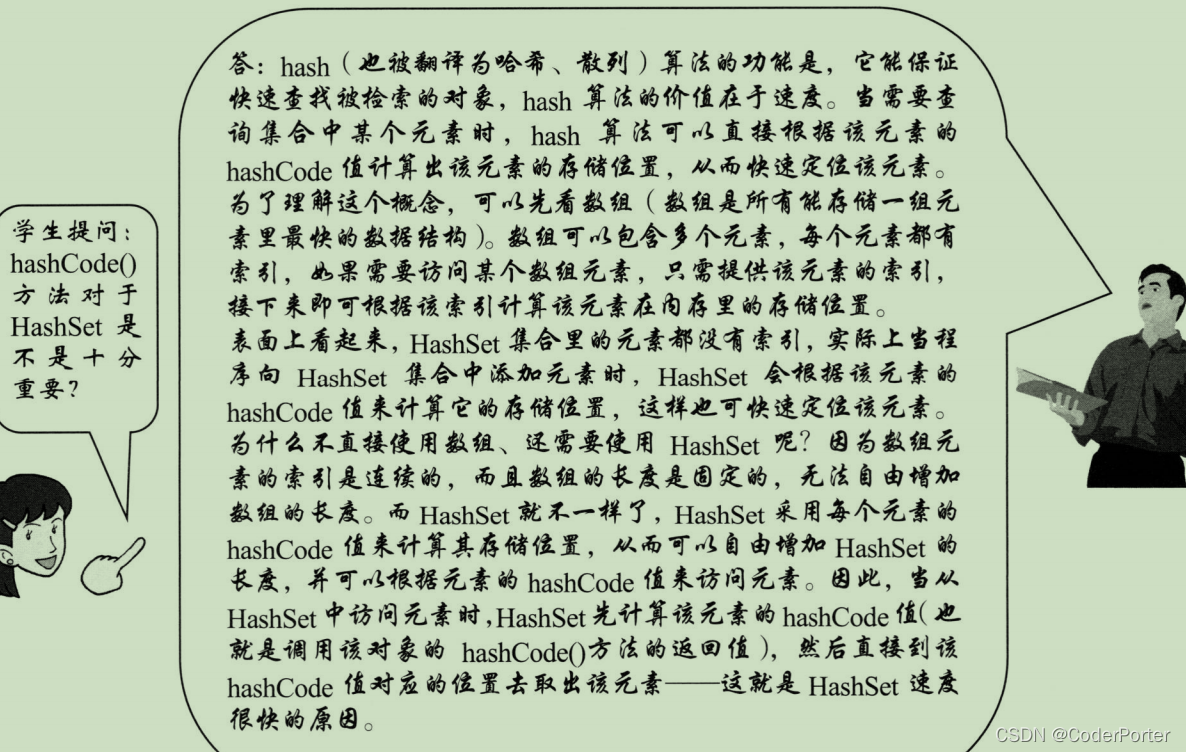 学生提问：
hashCode()
方法对于
HashSet 是
不是十分
重要？
答：hash（也被翻译为哈希、散列）算法的功能是，它能保证
快速查找被检索的对象，hash 算法的价值在于速度。当需要查
询集合中某个元素时，hash 算法可以直接根据该元素的
hashCode 值计算出该元素的存储位置，从而快速定位该元素。
为了理解这个概念，可以先看数组（数组是所有能存储一组元
素里最快的数据结构）。数组可以包含多个元素，每个元素都有
索引，如果需要访问某个数组元素，只需提供该元素的索引，
接下来即可根据该索引计算该元素在内存里的存储位置。
表面上看起来，HashSet 集合里的元素都没有索引，实际上当程
序向 HashSet 集合中添加元素时，HashSet 会根据该元素的
hashCode 值来计算它的存储位置，这样也可快速定位该元素。
为什么不直接使用数组、还需要使用 HashSet 呢？因为数组元
素的索引是连续的，而且数组的长度是固定的，无法自由增加
数组的长度。而 HashSet 就不一样了，HashSet 采用每个元素的
hashCode 值来计算其存储位置，从而可以自由增加 HashSet 的
长度，并可以根据元素的 hashCode 值来访问元素。因此，当从
HashSet 中访问元素时，HashSet 先计算该元素的 hashCode 值（也
就是调用该对象的 hashCode()方法的返回值），然后直接到该
hashCode 值对应的位置去取出该元素——这就是 HashSet 速度
很快的原因。
CSDN @CoderPorter